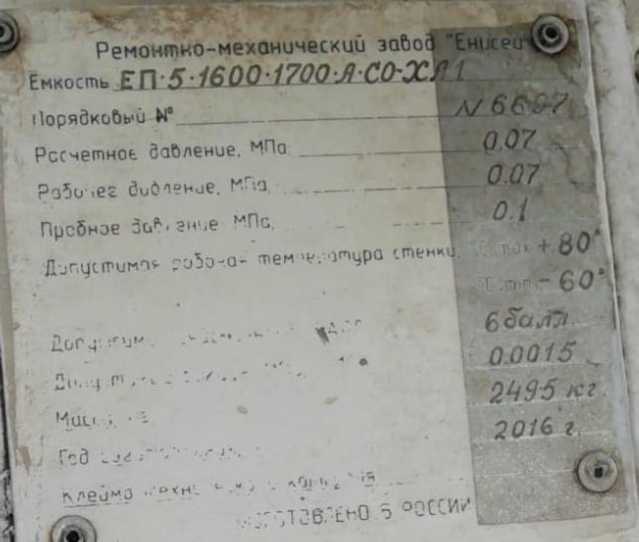 Ремонтно-механический завод "Енисей"
Емкость ЕП-5-1600-1700-А-СО-ХЛ1
Порядковый № N 6607
Рассчетное давление, МПа 0.07
Рабочее давление, МПа 0.07
Пробное давление МПа, 0.1
Допустимая рабочая температура стенки, °С max +80°
°С min -60°
6 балл
0.0015
Масса 2495 кг
Год 2016 г.
Клеймо
ИЗГОТОВЛЕНО В РОССИИ